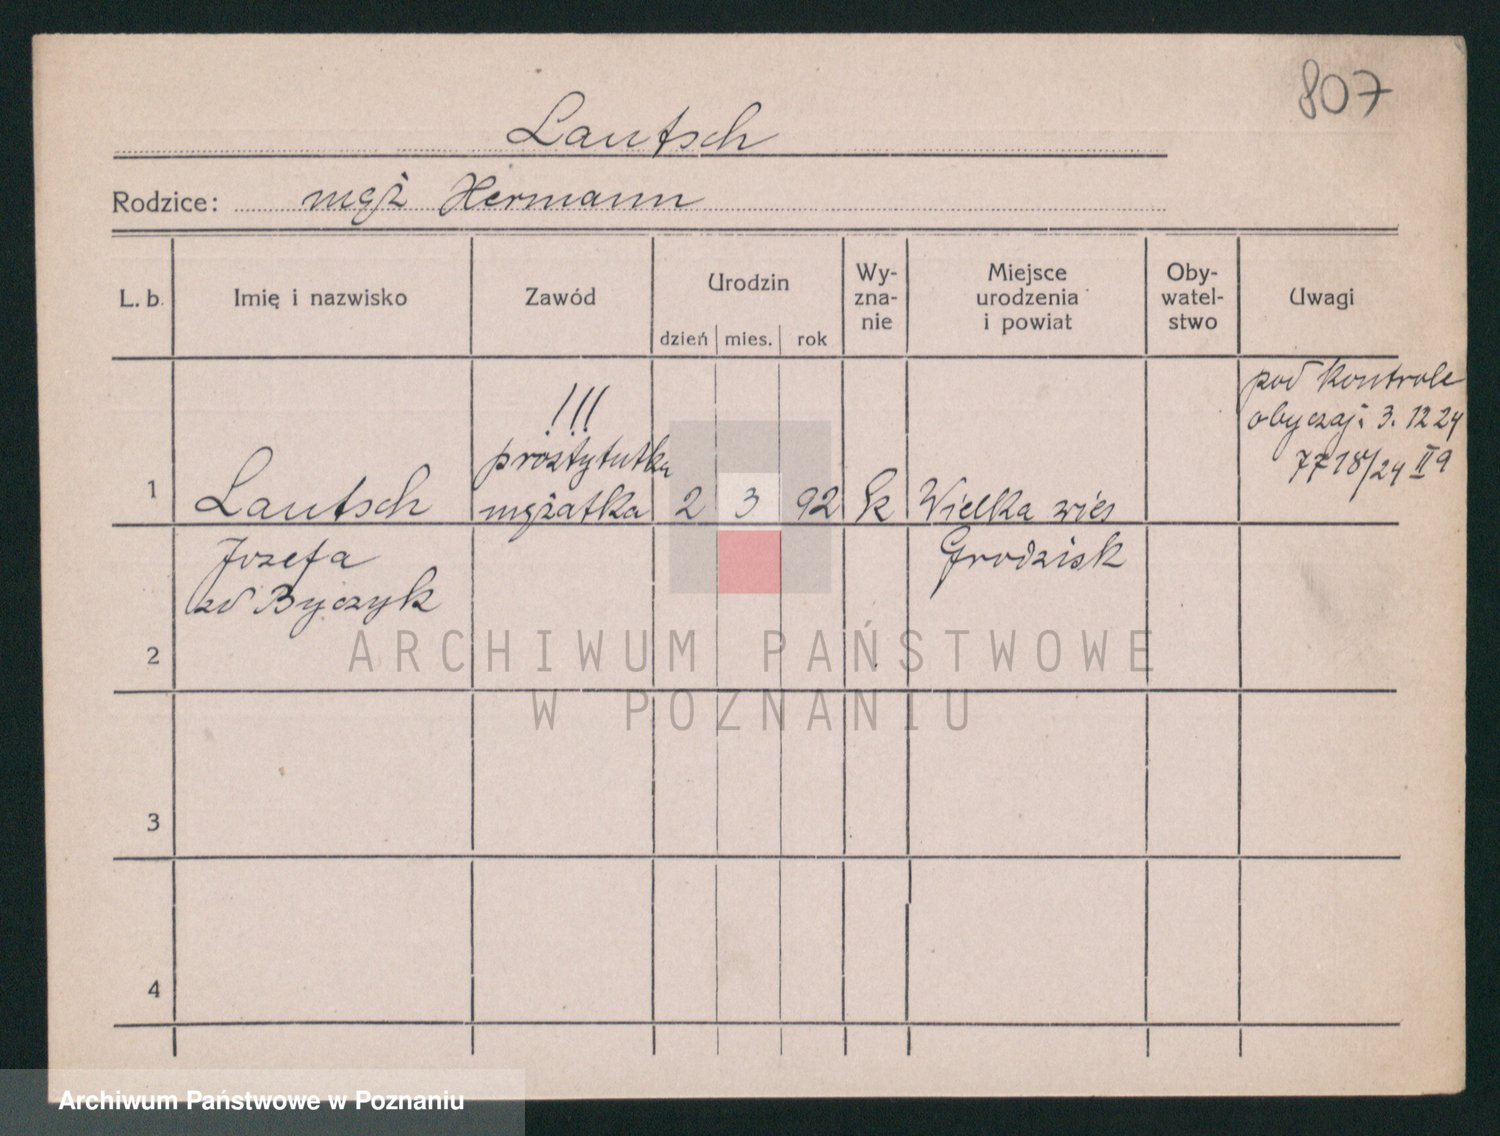 807
Lautsch
Rodzice: mąż Hermann
L. b. Imię i nazwisko Zawód Urodzin dzień mies. rok Wy-zna-nie Miejsce urodzenia i powiat Oby-watel-stwo Uwagi
pod kontrole
obyczaj: 3. 12 24
7718/24 II 9
!!!
prostytutka
1 Lautsch mężatka 2 3 92 k Wielka wieś
Józefa Grodzisk
zd Byczyk
2
3
4
ARCHIWUM PAŃSTWOWE
W POZNANIU
Archiwum Państwowe w Poznaniu